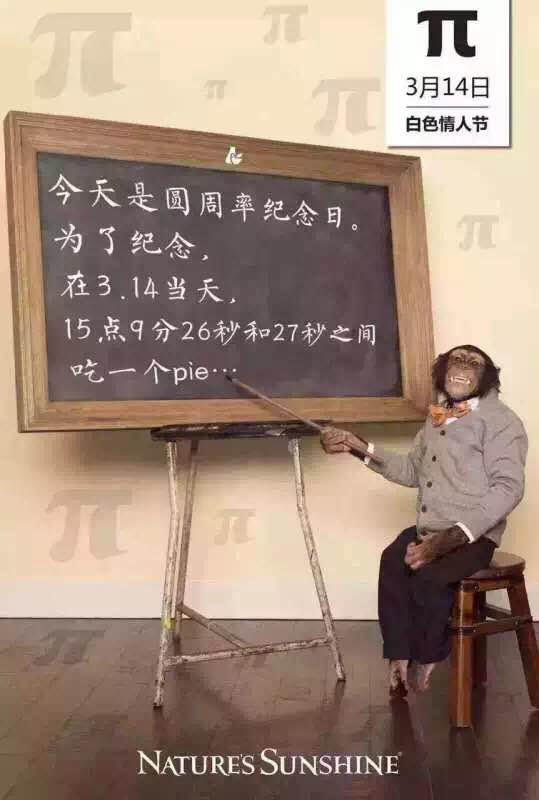 π
3月14日
白色情人节
今天是圆周率纪念日。
为了纪念,
在3.14当天,
15点9分26秒和27秒之间
吃一个pie…
NATURE'S SUNSHINE®